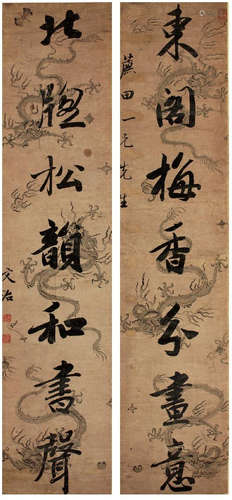 東閣梅香分畫意
田一元先生
北牕松韻和書聲
文治